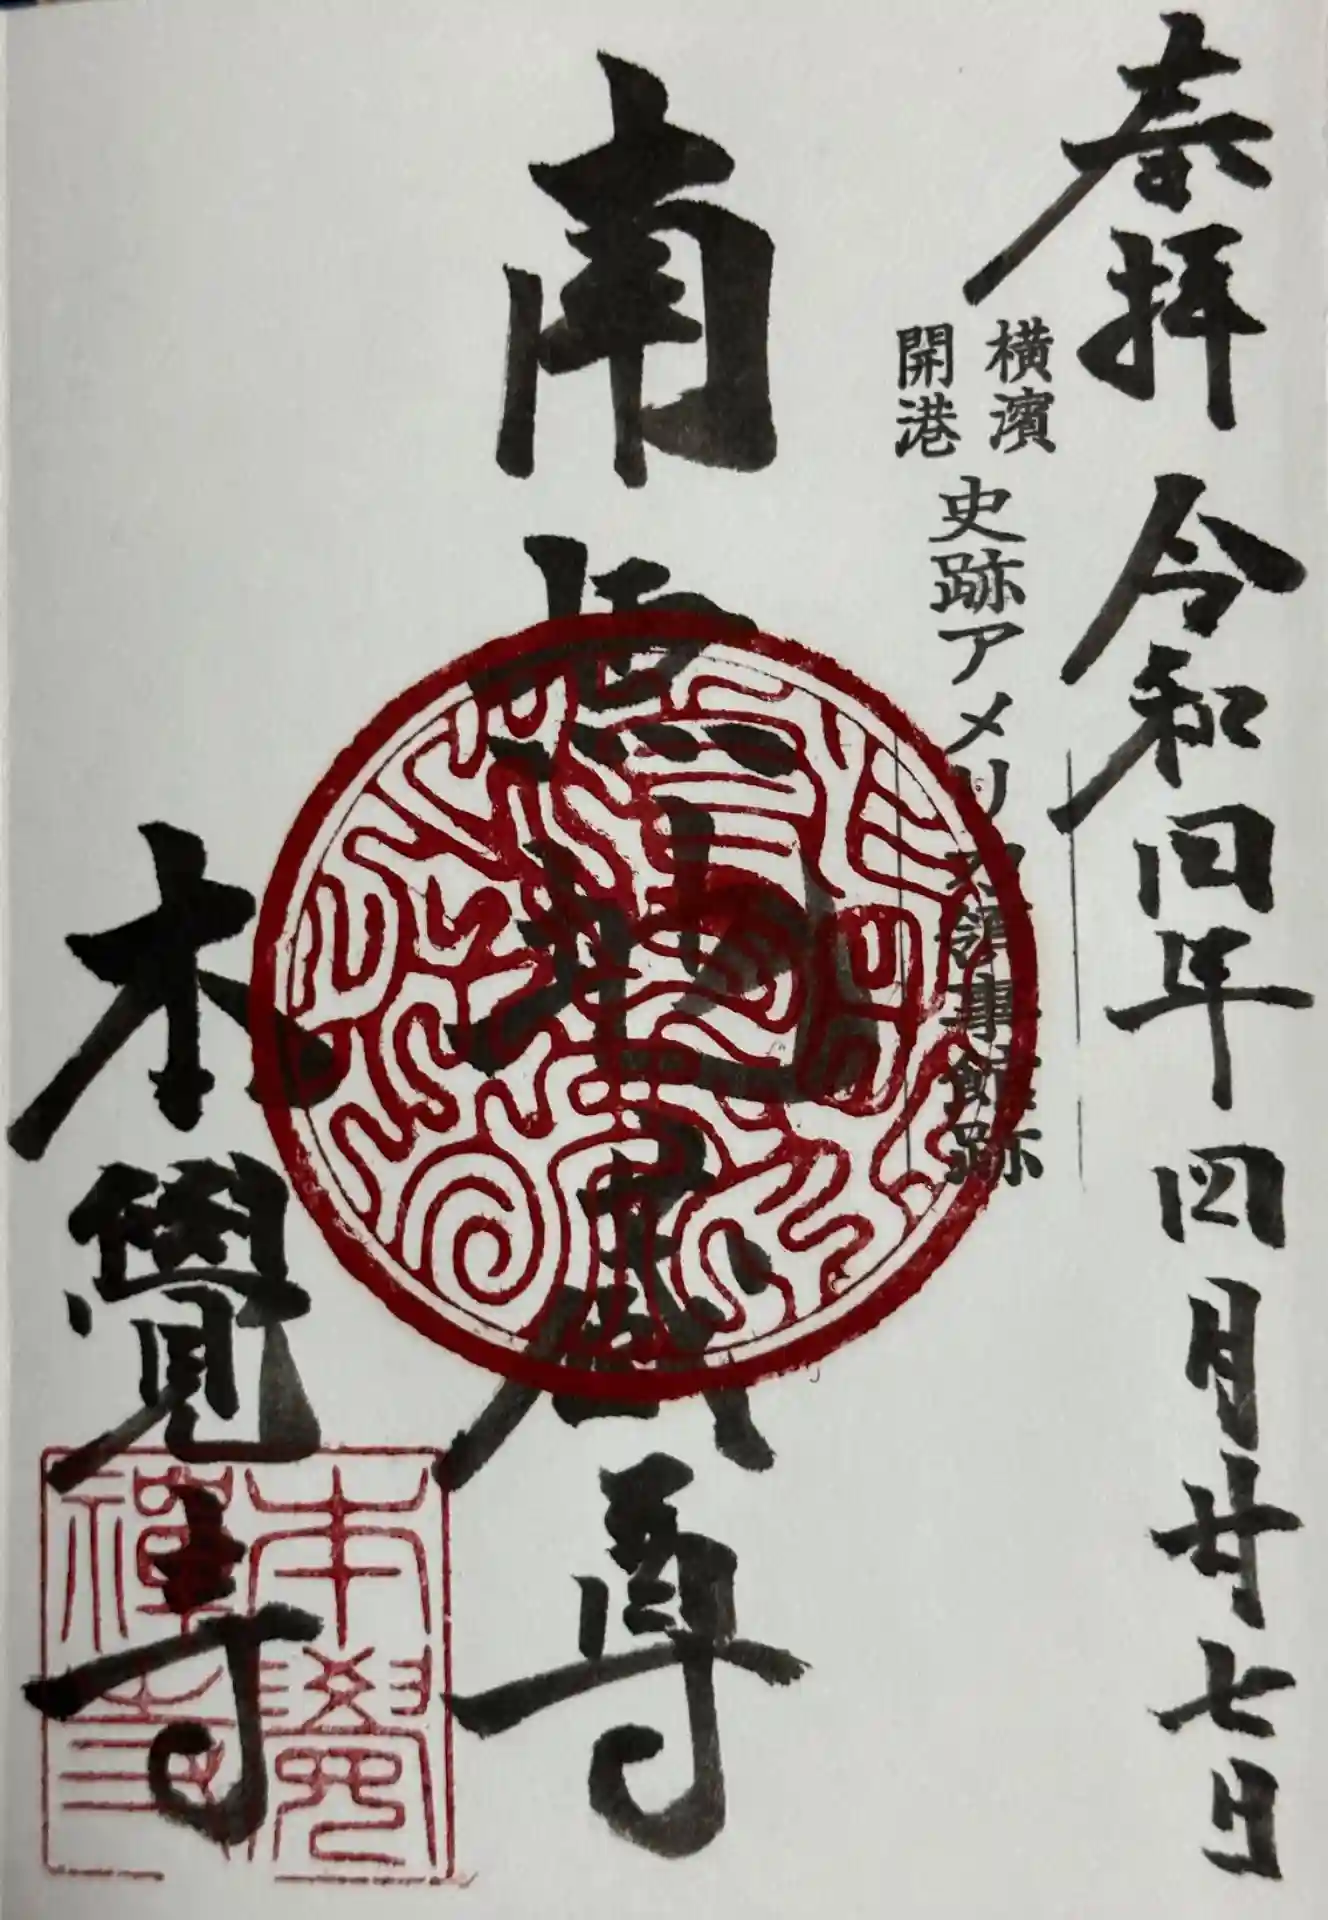 奉拝 令和四年四月廿七日
横濱
開港
史跡アメリカ領事館跡
南無地蔵尊
本覺寺
本覺
禪寺